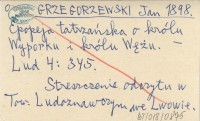 GRZEGORZEWSKI Jan 1898.
Epopeja tatrzańska o królu
Wyporku i królu Wężu. –
Lud 4: 345.
Streszczenie odczytu w
Tow. Ludoznawczym we Lwowie.